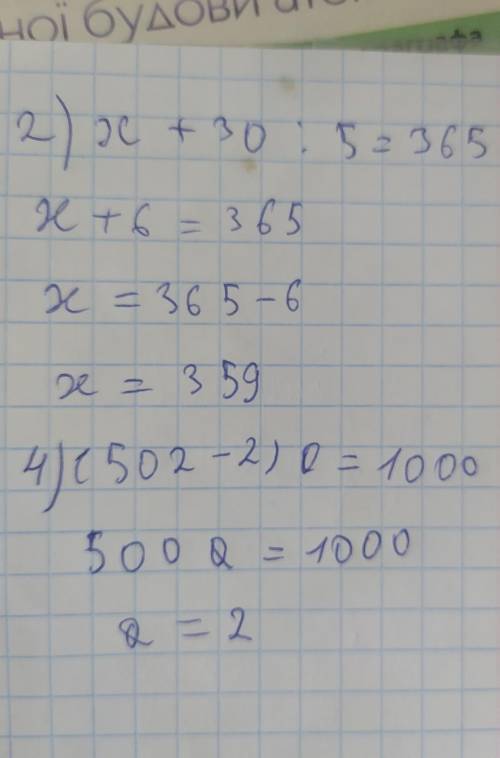 ної будови
2) x + 30 : 5 = 365
x + 6 = 365
x = 365 - 6
x = 359
4) (502 - 2) a = 1000
500 a = 1000
a = 2